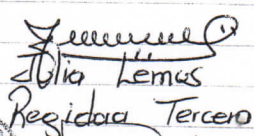 Julia Lemus
Regidora Tercero